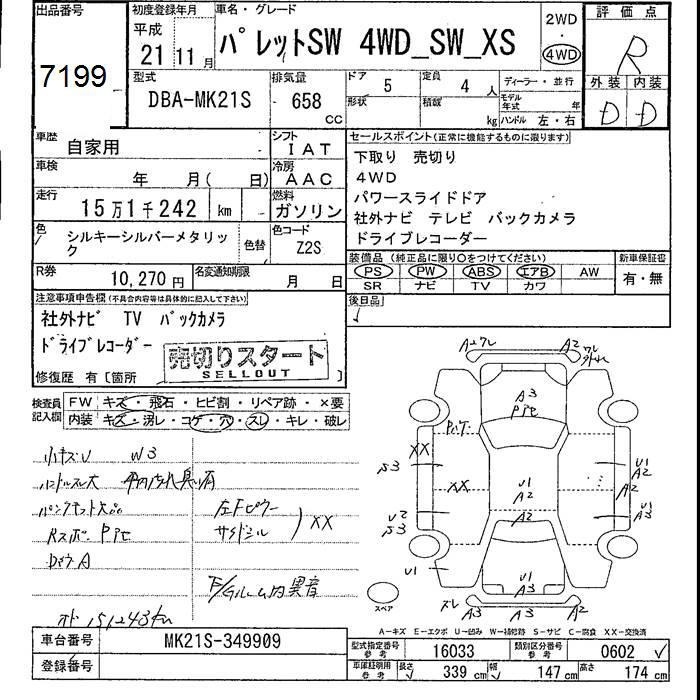 出品番号
7199
初度登録年月
平成
21 11 月
車名・グレード
パレットSW 4WD_SW_XS
2WD
・
4WD
評価点
R
外装 内装
D D
型式
DBA-MK21S
排気量
658
CC
ドア
5
定員
4 人
形状
積載
kg
ディーラー・並行
モデル年式 年
ハンドル 左・右
車歴
自家用
シフト
IAT
車検
年 月( 日)
冷房
AAC
走行
15万1千242 km
燃料
ガソリン
色
シルキーシルバーメタリック
色替
色コード
Z2S
R券
10,270円
名変通知期限
月 日
セールスポイント(正常に機能するものに限ります)
下取り 売切り
4WD
パワースライドドア
社外ナビ テレビ バックカメラ
ドライブレコーダー
装備品(純正品に限り〇をつけてください)
PS PW ABS エアB AW
SR ナビ TV カワ
新車保証書
有・無
後日品
注意事項申告欄(不具合内容等は具体的に記入して下さい)
社外ナビ TV バックカメラ
ドライブレコーダー
売切りスタート
SELLOUT
修復歴 有〔箇所 〕
検査員
記入欄
FW キズ・飛石・ヒビ割・リペア跡・×要
内装 キズ・汚レ・コゲ・穴・スレ・キレ・破レ
小キズU W3
Rスポ. Pit
左Fピラー
サイドシル
) XX
異音
A2
A2
A3
Pit
XX
S3
XX
U1
A2
A2
U1
A2
A2
U1
A3
U2
S3
U1
U1
A3
スレ A3 A3 A2
スペア
A-キズ E-エクボ U-凹み W-補修跡 S-サビ C-腐食 XX-交換済
車台番号
MK21S-349909
登録番号
型式指定番号
参考
16033
類別区分番号
参考
0602
車庫証明用
参考
長さ
339 cm
幅
147 cm
高さ
174 cm